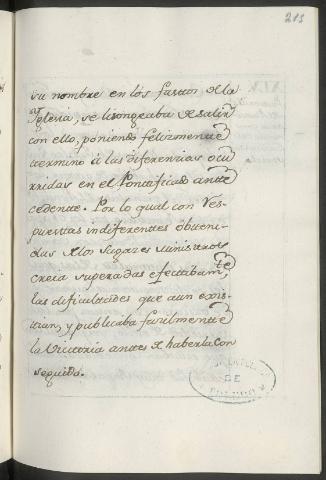 213
su nombre en los fastos de la
Yglesia, se lisongeaba de salir
con ello, poniendo felizmente
termino á las diferencias ocu
rridas en el Pontificado ante
cedente. Por lo qual con res-
puestas indiferentes obteni-
das de los sugetos Ministros
creía superadas efectibamte
las dificultades que aun exis-
tian, y publicaba facilmente
la Victoria antes de haberla con
seguido.
DE